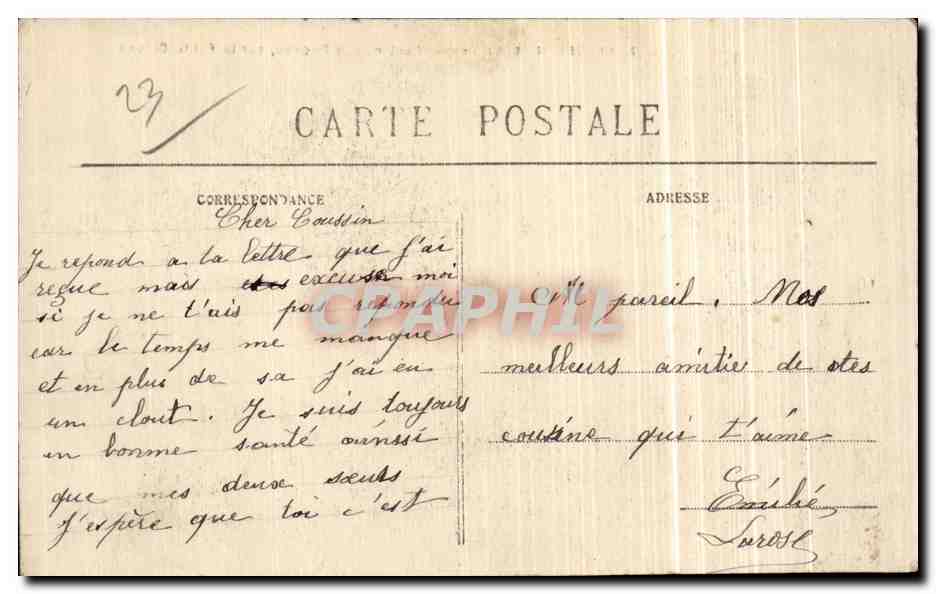 23
CARTE POSTALE
CORRESPONDANCE
ADRESSE
Cher Coussin
Je repond a la lettre que j'ai
reçue mais excuse moi
si je ne t'ais pas repondu
car le temps me manque
et en plus de sa j'ai eu
un clout. Je suis toujours
en bonne santé ainssi
que mes deux sœurs
J'espère que toi c'est
pareil. Mes
meilleurs amitie de tes
cousine qui t'aime
Emilié
Larose
CPAPHIL